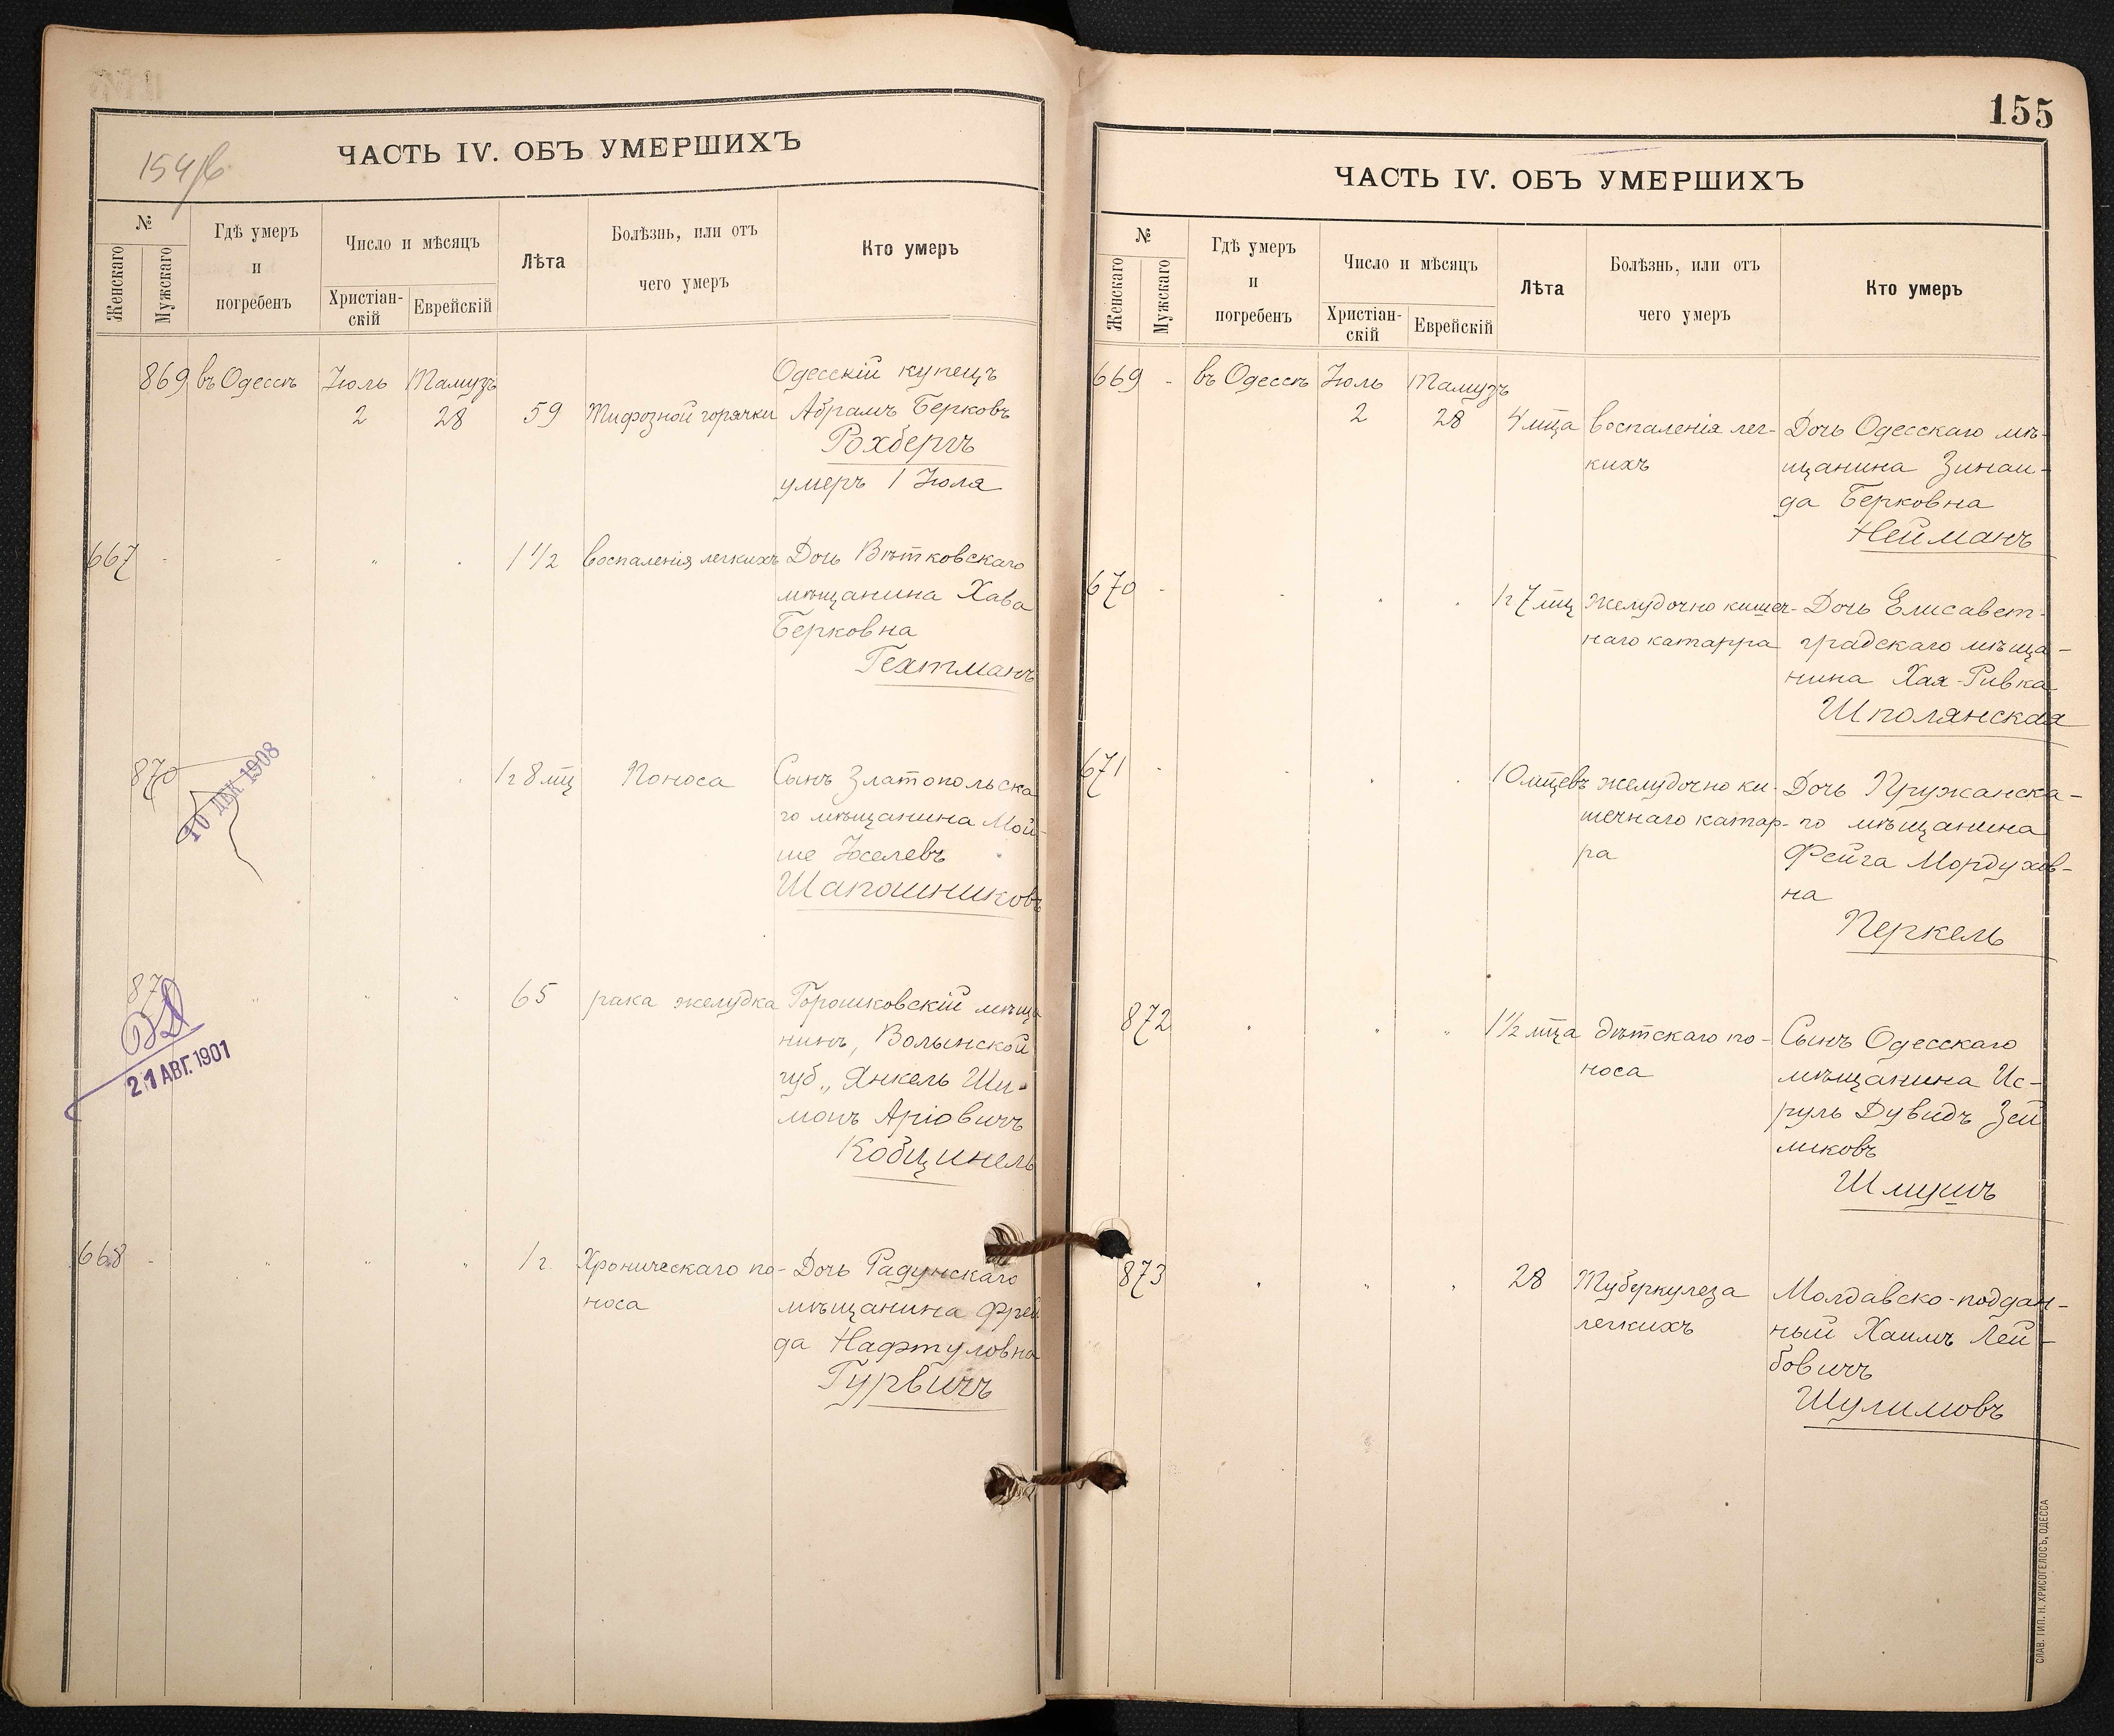 154/б
ЧАСТЬ IV. ОБЪ УМЕРШИХЪ
№
Женскаго
Мужскаго
Гдѣ умеръ
и
погребенъ
Число и мѣсяцъ
Христіан-
скій
Еврейскій
Лѣта
Болѣзнь, или отъ
чего умеръ
Кто умеръ
869 въ Одессѣ Іюль Тамузъ Одесскій купецъ
2 28 59 Тифозной горячки Абрамъ Берковъ
Рохбергъ
умеръ 1 Іюля
667 - - " . 1 1/2 воспаленія легкихъ Дочь Вѣтковскаго
мѣщанина Хава
Берковна
Гехтманъ
870 " . 1 г 8 мц Поноса Сынъ Златопольска
го мѣщанина Мой-
ше Іоселевъ
Шапошниковъ
10 ДЕК 1908
87 " " " 65 рака желудка Горошковскій мѣща
нинъ, Волынской
губ., Янкель Ши-
монъ Аріовичъ
Кобцинель
21 АВГ. 1901
668 - " " " 1 г. Хроническаго по- Дочь Радунскаго
носа мѣщанина Фрей
да Нафтуловна
Гурвичъ
155
ЧАСТЬ IV. ОБЪ УМЕРШИХЪ
№
Женскаго
Мужскаго
Гдѣ умеръ
и
погребенъ
Число и мѣсяцъ
Христіан-
скій
Еврейскій
Лѣта
Болѣзнь, или отъ
чего умеръ
Кто умеръ
669 - въ Одессѣ Іюль Тамузъ
2 28 4 мца воспаленія лег- Дочь Одесскаго мѣ-
кихъ щанина Зинаи-
да Берковна
Нейманъ
670 - - . . 1 г 7 мц желудочно кишеч- Дочь Елисавет-
наго катарра градскаго мѣща-
нина Хая-Ривка
Шполянская
671 - - . . 10 мцевъ желудочно ки- Дочь Пружанска-
шечнаго катар- го мѣщанина
ра Фейга Мордухов-
на
Перкель
872 " " " 1 1/2 мца дѣтскаго по- Сынъ Одесскаго
носа мѣщанина Ис-
руль Дувидъ Зей
ликовъ
Шмушъ
873 " " " 28 Туберкулеза Молдавско-поддан-
легкихъ ный Хаимъ Лей-
бовичъ
Шулимовъ
СЛАВ. ТИП. Н. ХРИСОГЕЛОСЪ, ОДЕССА